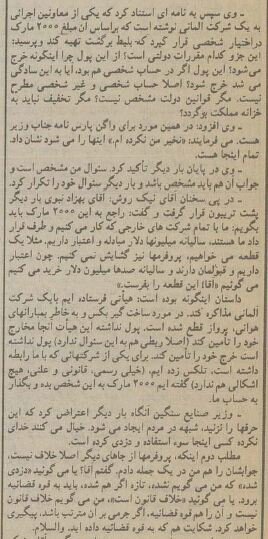 ـ وی سپس به نامه ای استناد کرد که یکی از معاونین اجرائی
به یک شرکت آلمانی نوشته است که براساس آن مبلغ ۲۰۰۰ مارک
دراختیار شخصی قرار گیرد که بلیط برگشت تهیه کند و پرسید:
این جزو کدام مقررات دولتی است؟ از این پول چرا اینگونه خرج
می‌شود؟ این پول اگر در حساب شخصی هم بود، آیا به این سادگی
می شد خرج شود؟ اصلا حساب شخصی و غیر شخصی مطرح
نیست. مگر قوانین دولت مشخص نیست؟ مگر تخفیف نباید به
خزانه مملکت برگردد؟
ـ وی افزود: در همین مورد برای واگن پارس نامه جناب وزیر
هست. می فرمایند: «نخیر من نکرده ام.» اینها را می شود نشان داد.
تمام اینجا هست.
ـ وی در پایان بار دیگر تأکید کرد. سئوال من مشخص است و
جواب آن هم باید مشخص باشد و بار دیگر سئوال خود را تکرار کرد.
ـ در پی سخنان آقای نیک روش، آقای بهزاد نبوی بار دیگر
پشت تریبون قرار گرفت و گفت: راجع به این ۲۰۰۰ مارک باید
بگویم: ما با تمام شرکت های خارجی که کار می کنیم و طرف قرار
داد ما هستند، سالیانه میلیونها دلار مبادله و اعتبار داریم. مثلا یک
قطعه می خواهیم، پروفرمها نیز گشایش نمی کنیم. چون اعتبار
داریم و قبولمان دارند و سالیانه صدها میلیون دلار خرید می کنیم
می گوئیم «آقا! این قطعه را بفرست.»
داستان اینگونه بوده است: هیأتی فرستاده ایم بایک شرکت
آلمانی مذاکره کند. در مورد ساخت گیر بکس و به خاطر بمبارانهای
هوائی، پرواز قطع شده است. پول نداشته این هیأت آنجا مخارج
خود را تأمین کند (اصلا ربطی هم به این سئوال ندارد) پول نداشته
است خرج خود را تأمین کند. برای یکی از شرکتهائی که با ما رابطه
داشته است، تلکس زده ایم، (خیلی رسمی، قانونی و علنی، هیچ
اشکالی هم ندارد) گفته ایم ۲۰۰۰ مارک به این شخص بده و بگذار
به حساب ما.
ـ وزیر صنایع سنگین آنگاه بار دیگر اعتراض کرد که این
حرفها را نزنید. شبهه در مردم ایجاد می شود. خیال می کنند خدای
نکرده کسی اینجا سوء استفاده و دزدی کرده است.
مطلب دوم اینکه، پروفرمها از جاهای دیگر اصلا خلاف نیست.
جوابشان را هم من در یک جمله دادم. گفتم آقا! یا می گوئید «دزدی
شده» که من می گویم نشده، تازه اگر هم شده، باید به قوه قضائیه
برود. یا می گوئید «خلاف قانون است» من می گویم خلاف قانون
نیست و آن را هم قوه قضائیه، اگر جرمی بر آن مترتب باشد، پیگیری
خواهد کرد. شکایت هم که به قوه قضائیه داده اید. والسلام.